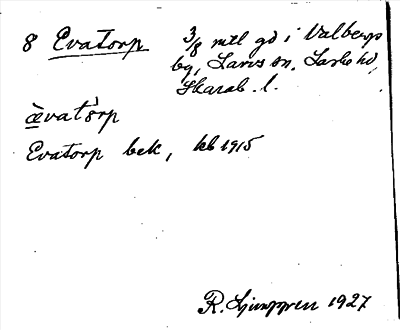 8 Evatorp 3/8 mtl gd i Valbergs
by, Larvs sn, Laske hd,
Skarab. l.
æ̀vatórp
Evatorp bek, kb 1915
R. Ljunggren 1927